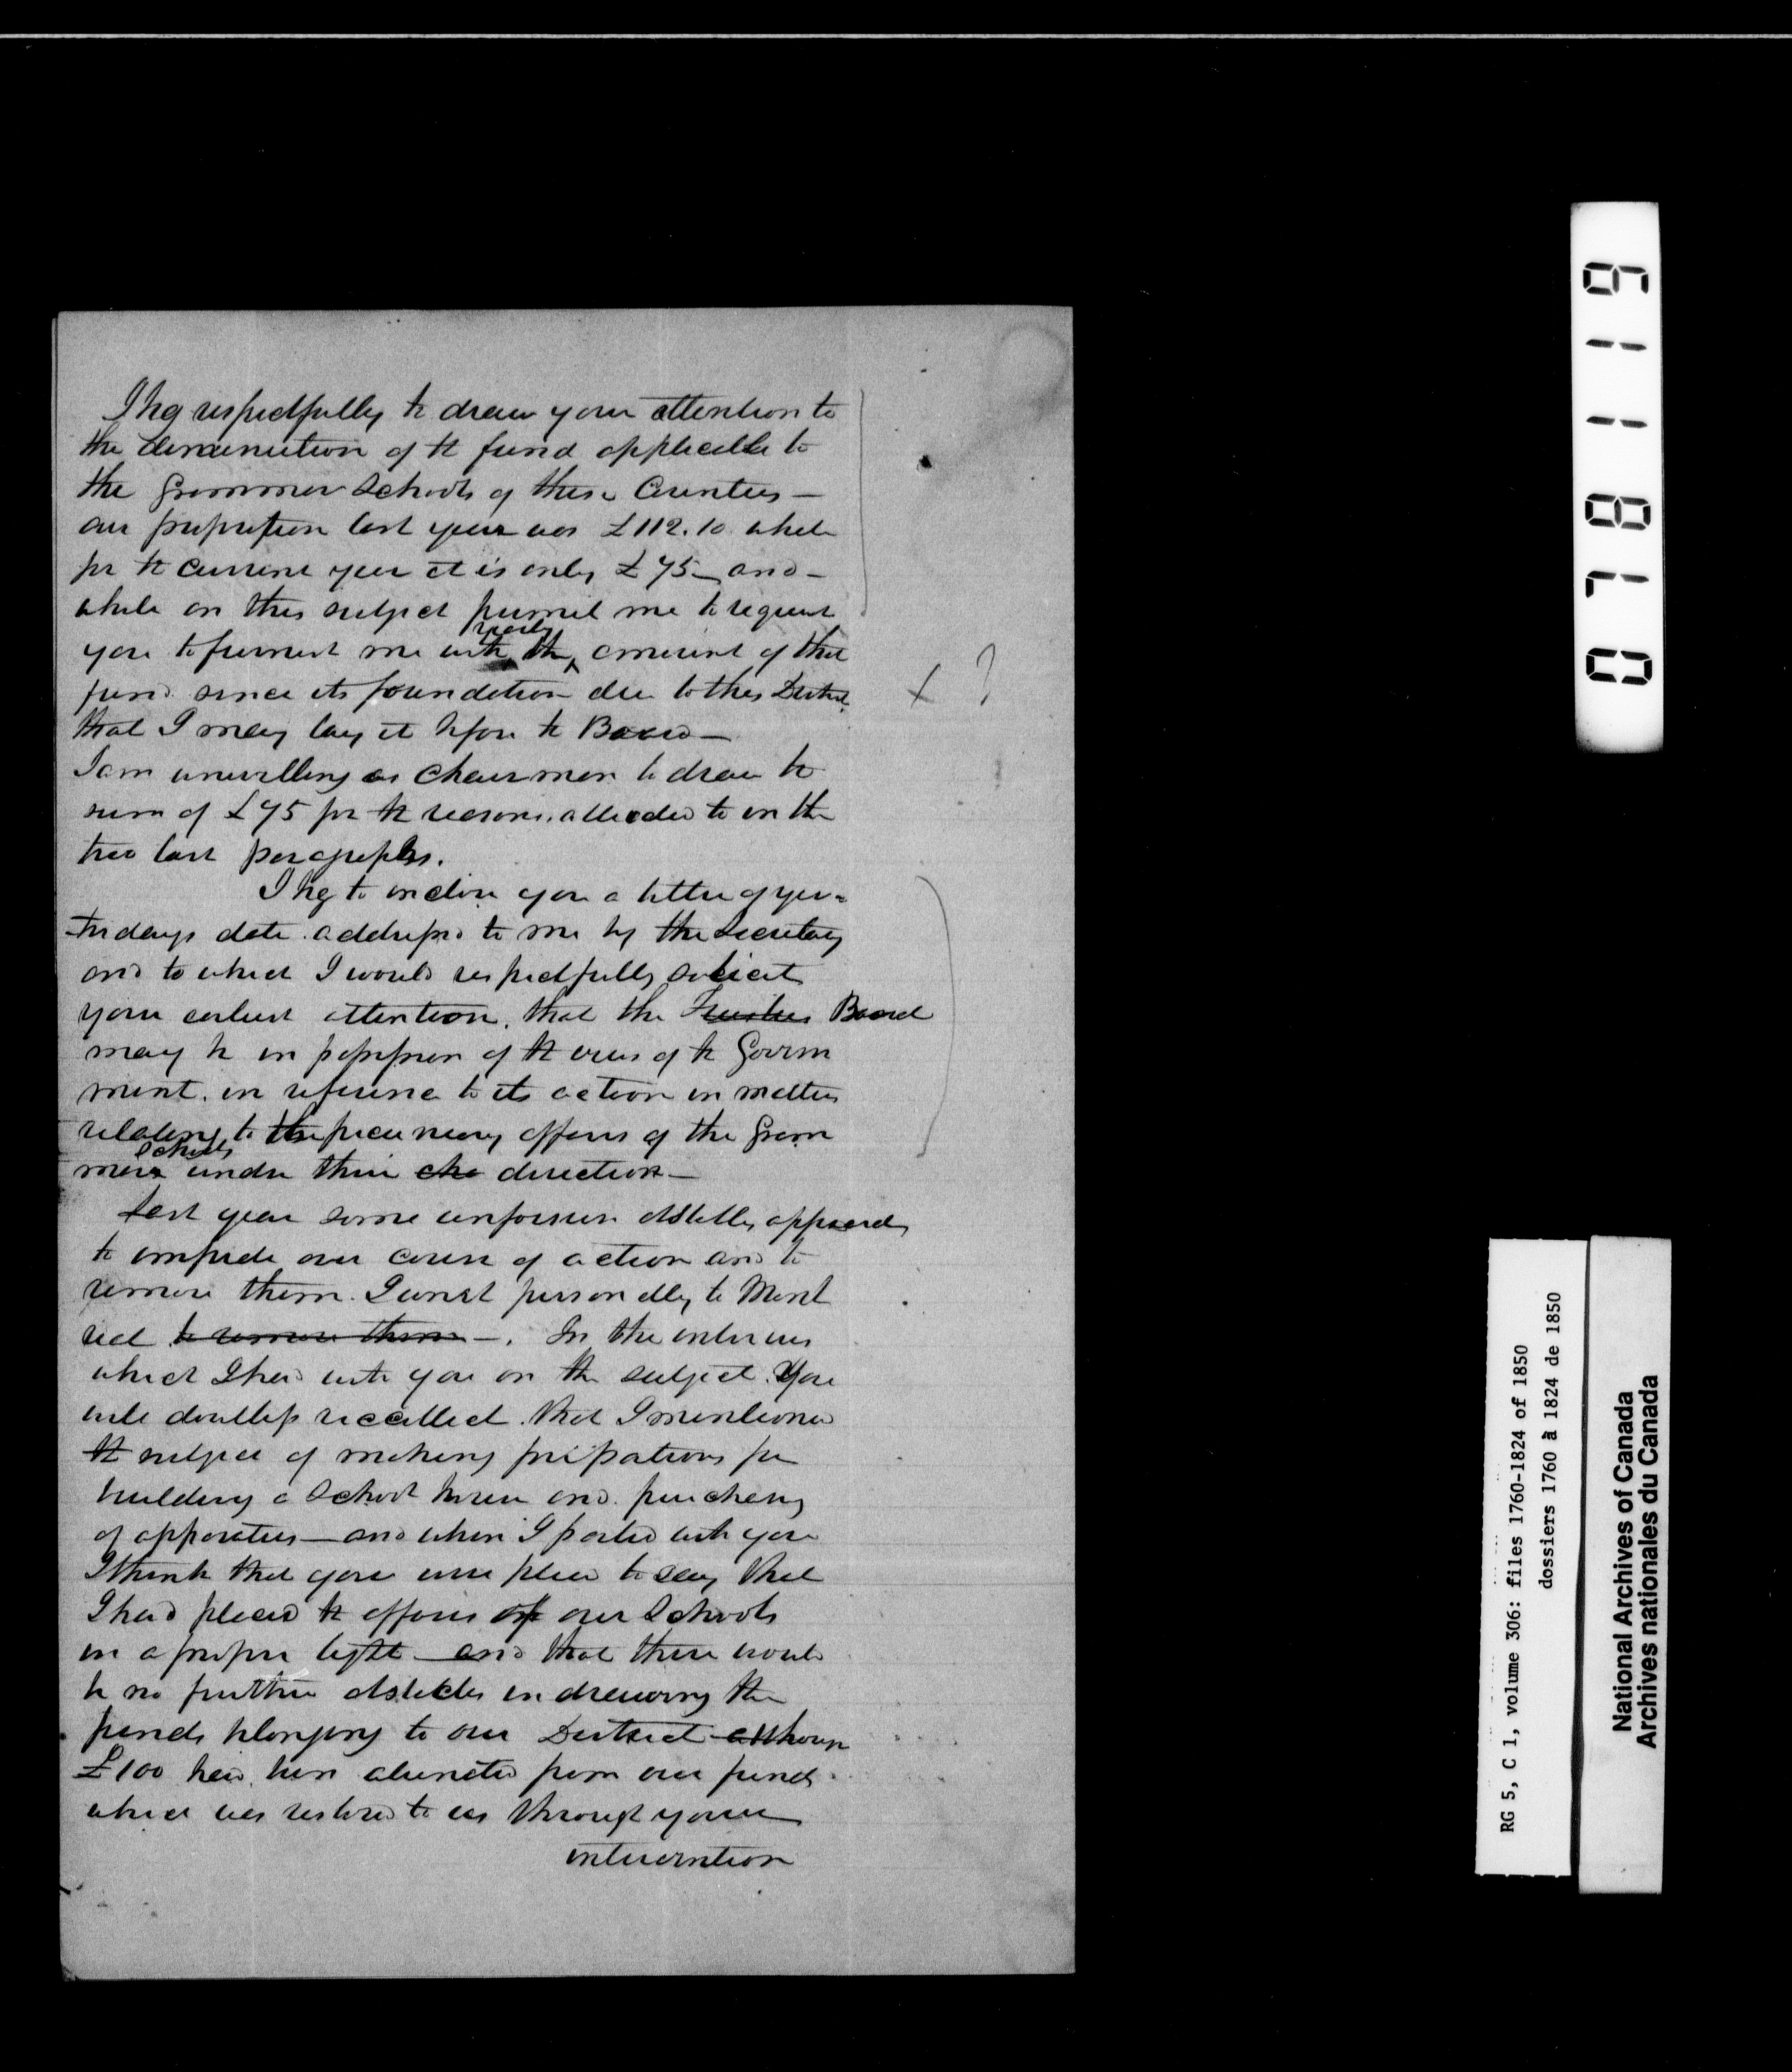 I beg respectfully to draw your attention to
the diminution of the fund applicable to
the Grammar Schools of these Counties —
our proportion last year was £112.10 while
for the current year it is only £75 — and —
while on this subject permit me to request
you to furnish me with the yearly amount of that
fund since its foundation due to this District
that I may lay it before the Board —
I am unwilling as Chairman to draw the
sum of £75 for the reasons alluded to in the
two last paragraphs.
I beg to inclose you a letter of yes=
terdays date addressed to me by the Secretary
and to which I would respectfully solicit
your earliest attention, that the Trustees Board
may be in possession of the views of the Govern
ment in reference to its action in matters
relating to the pecuniary affairs of the Gram
mar Schools under their cha direction —
Last year some unforseen obstacles appeared
to impede our course of action and to
remove them I went personally to Mont
real to remove them —. In the interview
which I had with you on the subject you
will doubtless recollect that I mentioned
the subject of making preparations for
building a School house and purchasing
of apparatus — and when I parted with you
I think that you were pleased to say that
I had placed the affairs of our Schools
in a proper light and that there would
be no further obstacles in drawing the
funds belonging to our District although
£100 had been alienated from our funds
which was restored to us through your
intervention
x ?
078119
RG 5, C 1, volume 306: files 1760-1824 of 1850
dossiers 1760 à 1824 de 1850
National Archives of Canada
Archives nationales du Canada